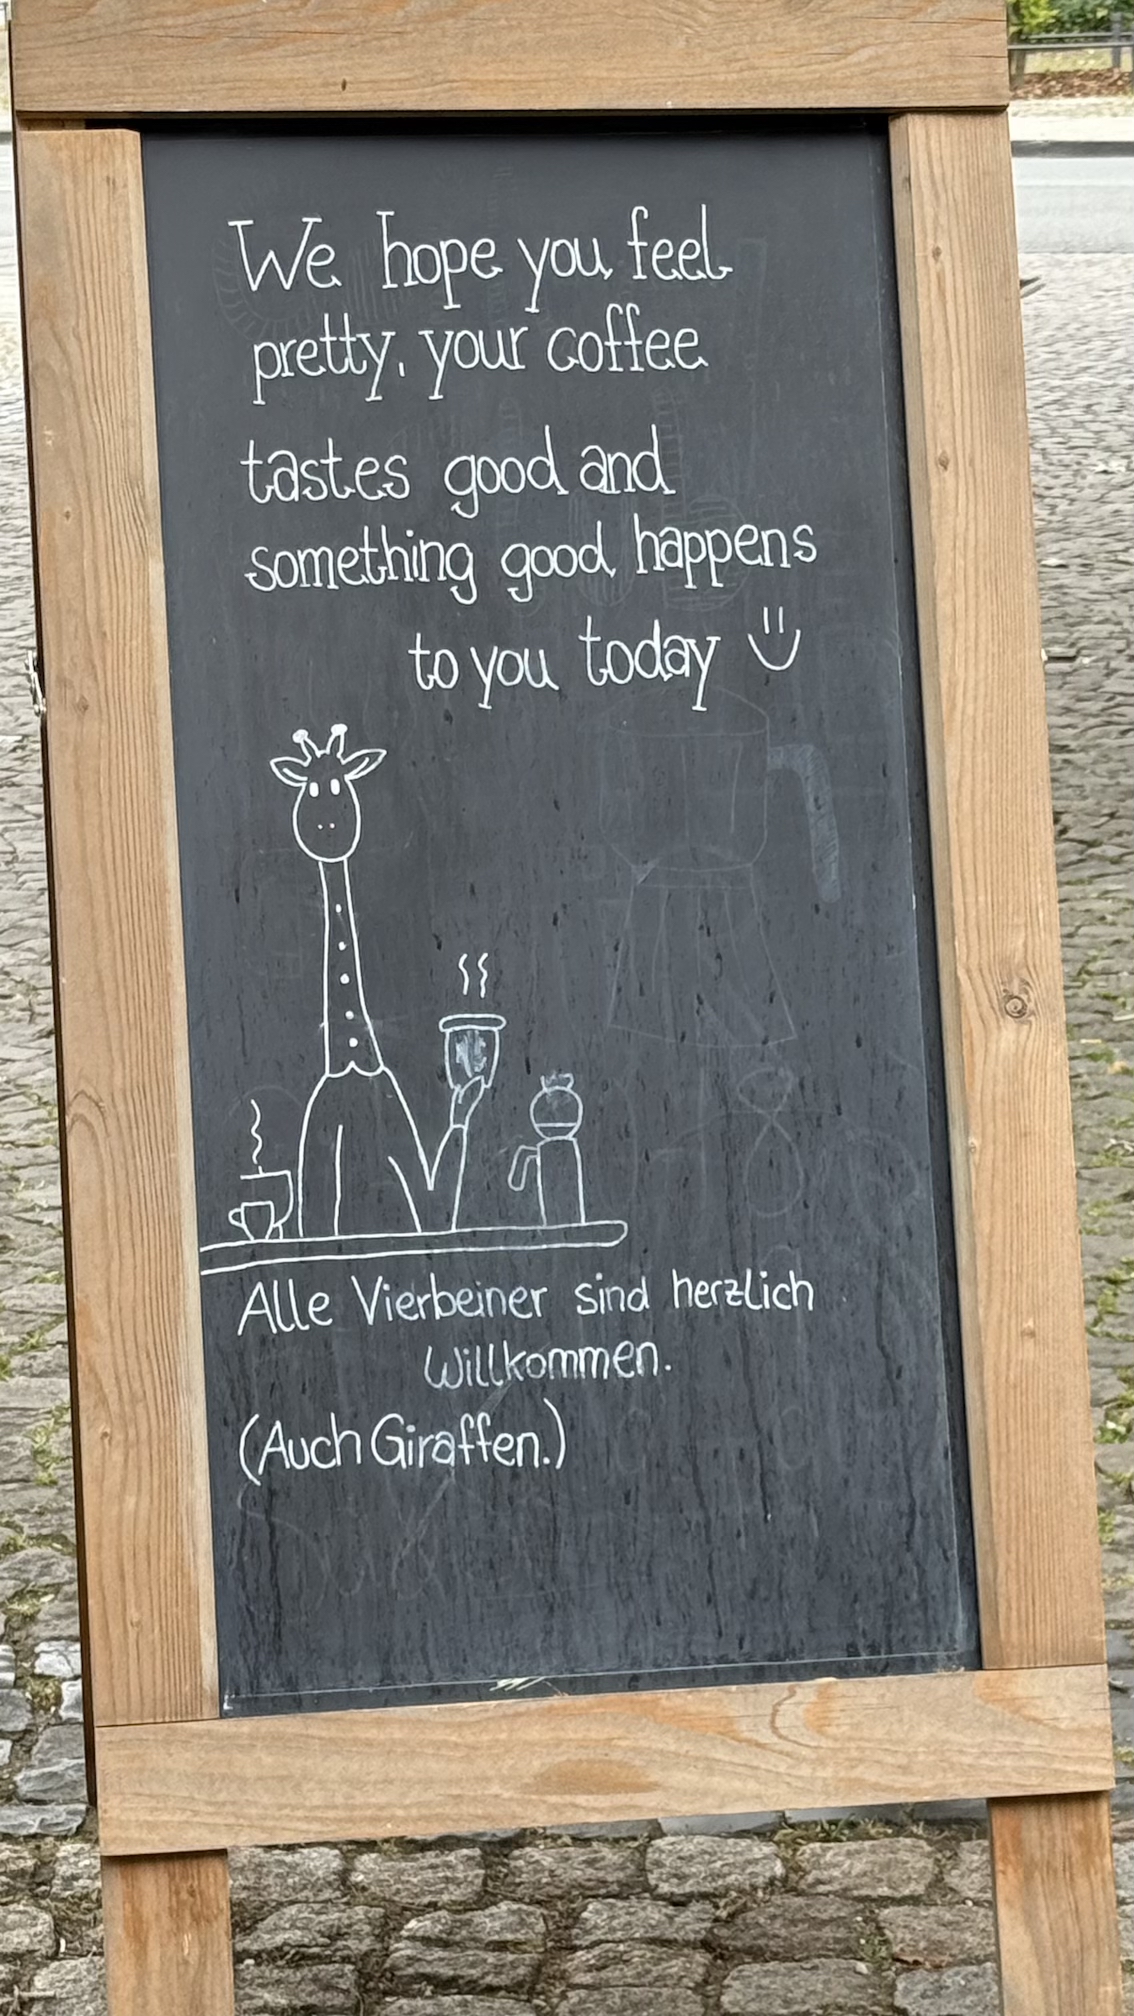 We hope you feel
pretty, your coffee
tastes good and
something good happens
to you today
Alle Vierbeiner sind herzlich
Willkommen.
(Auch Giraffen.)